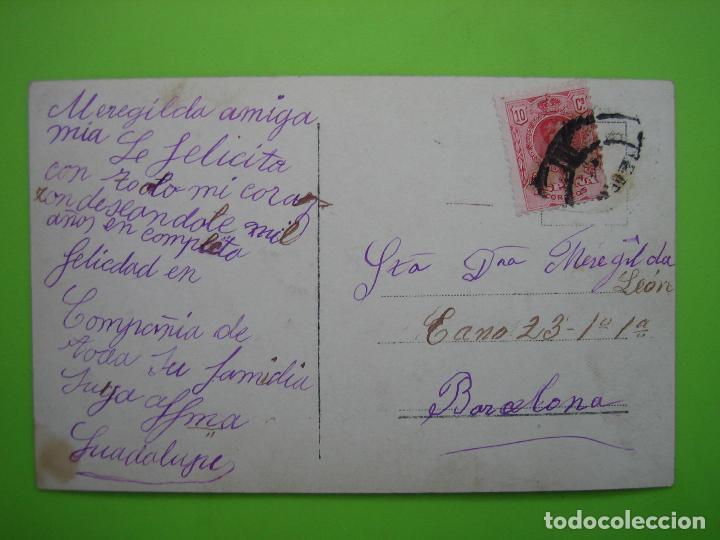 Meregilda amiga
mia Le felicita
con todo mi coraz
zon deseandole mil
años en completa
felicidad en
Compañia de
toda su familia
suya affma
Guadalupe
10 Cs
CORREOS
Sta Dña Meregilda
León
Cano 23-1º 1ª
Barcelona
todocoleccion
todocoleccion.net